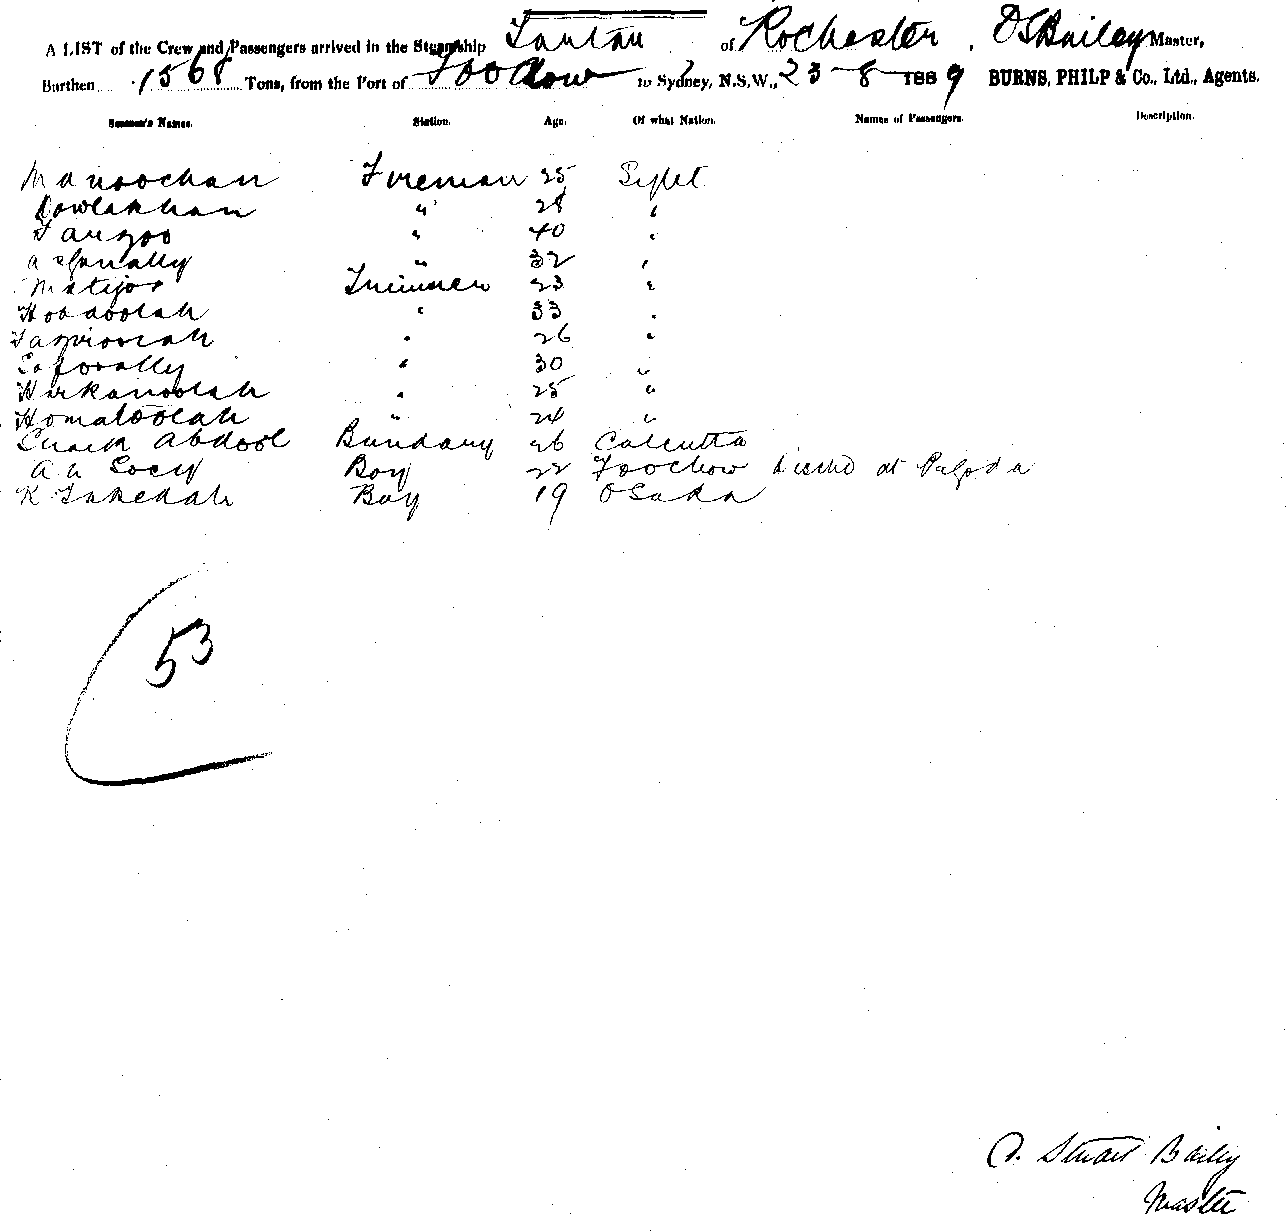 A LIST of the Crew and Passengers arrived in the Steamship Tantau of Rochester, D S Bailey Master,
Burthen 1568 Tons, from the Port of Foochow to Sydney, N.S.W., 23-8-1889 BURNS, PHILP & Co., Ltd., Agents.
Seamen's Names. Station. Age. Of what Nation. Names of Passengers. Description.
Manoochan Fireman 25 Sylet
Dowlakhan " 28 "
Tangoo " 40 "
" 32 "
Matijos Trimmer 23 "
Hobdoolah " 33 "
" 26 "
" 30 "
Hurkanoolah " 25 "
Homaloolah " 24 "
Shaik Abdool Bundary 26 Calcutta
Boy 22 Foochow at
K Takedah Boy 19 Osaka
53
D. Stuart Bailey
Master